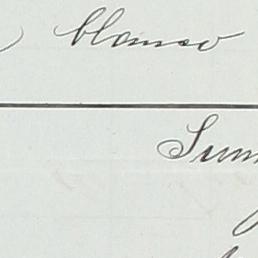 blanco
Sum